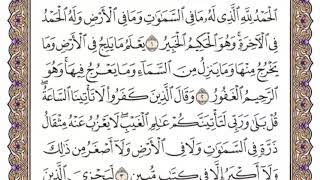 ٱلۡحَمۡدُ لِلَّهِ ٱلَّذِي لَهُۥ مَا فِي ٱلسَّمَٰوَٰتِ وَمَا فِي ٱلۡأَرۡضِ وَلَهُ ٱلۡحَمۡدُ
فِي ٱلۡأٓخِرَةِۚ وَهُوَ ٱلۡحَكِيمُ ٱلۡخَبِيرُ ١ يَعۡلَمُ مَا يَلِجُ فِي ٱلۡأَرۡضِ وَمَا
يَخۡرُجُ مِنۡهَا وَمَا يَنزِلُ مِنَ ٱلسَّمَآءِ وَمَا يَعۡرُجُ فِيهَاۚ وَهُوَ
ٱلرَّحِيمُ ٱلۡغَفُورُ ٢ وَقَالَ ٱلَّذِينَ كَفَرُواْ لَا تَأۡتِينَا ٱلسَّاعَةُۖ
قُلۡ بَلَىٰ وَرَبِّي لَتَأۡتِيَنَّكُمۡ عَٰلِمِ ٱلۡغَيۡبِۖ لَا يَعۡزُبُ عَنۡهُ مِثۡقَالُ
ذَرَّةٖ فِي ٱلسَّمَٰوَٰتِ وَلَا فِي ٱلۡأَرۡضِ وَلَآ أَصۡغَرُ مِن ذَٰلِكَ
وَلَآ أَكۡبَرُ إِلَّا فِي كِتَٰبٖ مُّبِينٖ ٣ لِّيَجۡزِيَ ٱلَّذِينَ